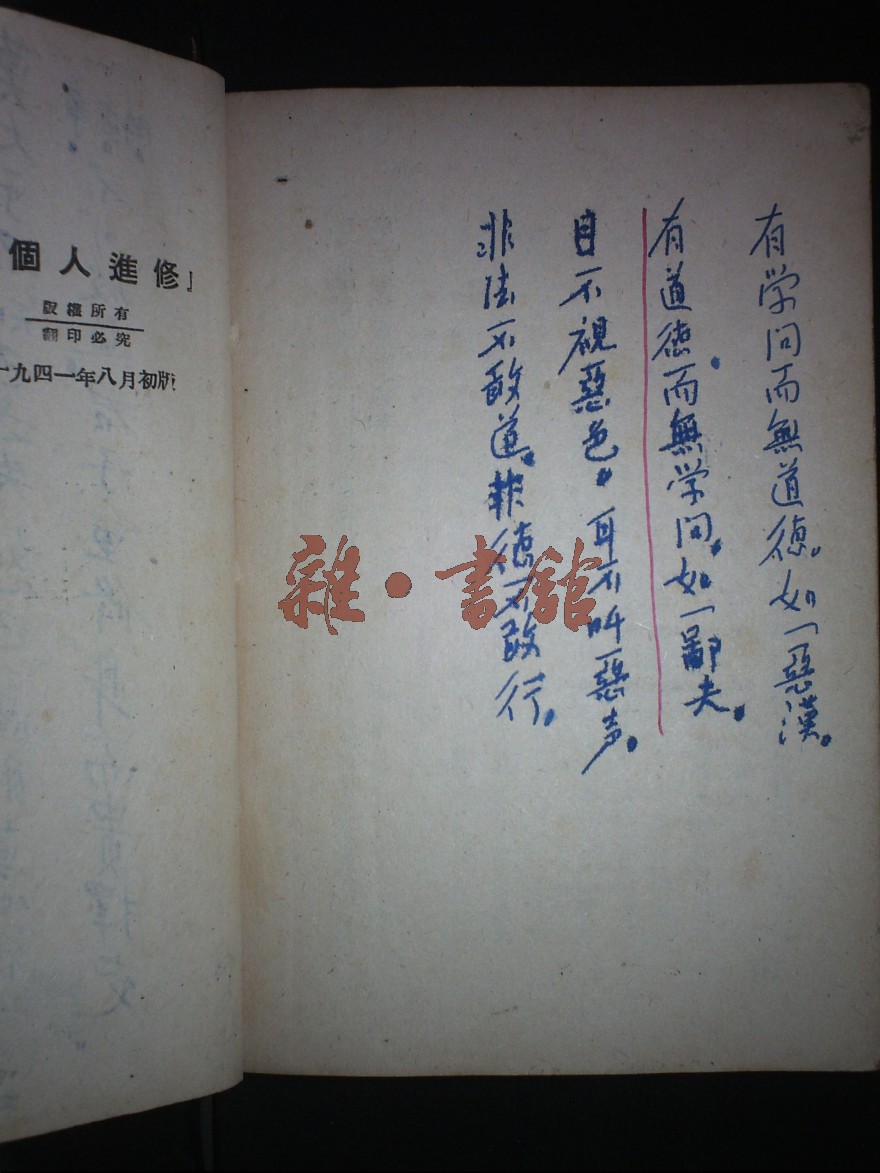 有学问而無道德。如一惡漢。
有道德而無学问。如一鄙夫。
目不視惡色。耳不叫惡声。
非法不敢道。非德不敢行。
個人進修』
版權所有
翻印必究
一九四一年八月初版
雜·書館